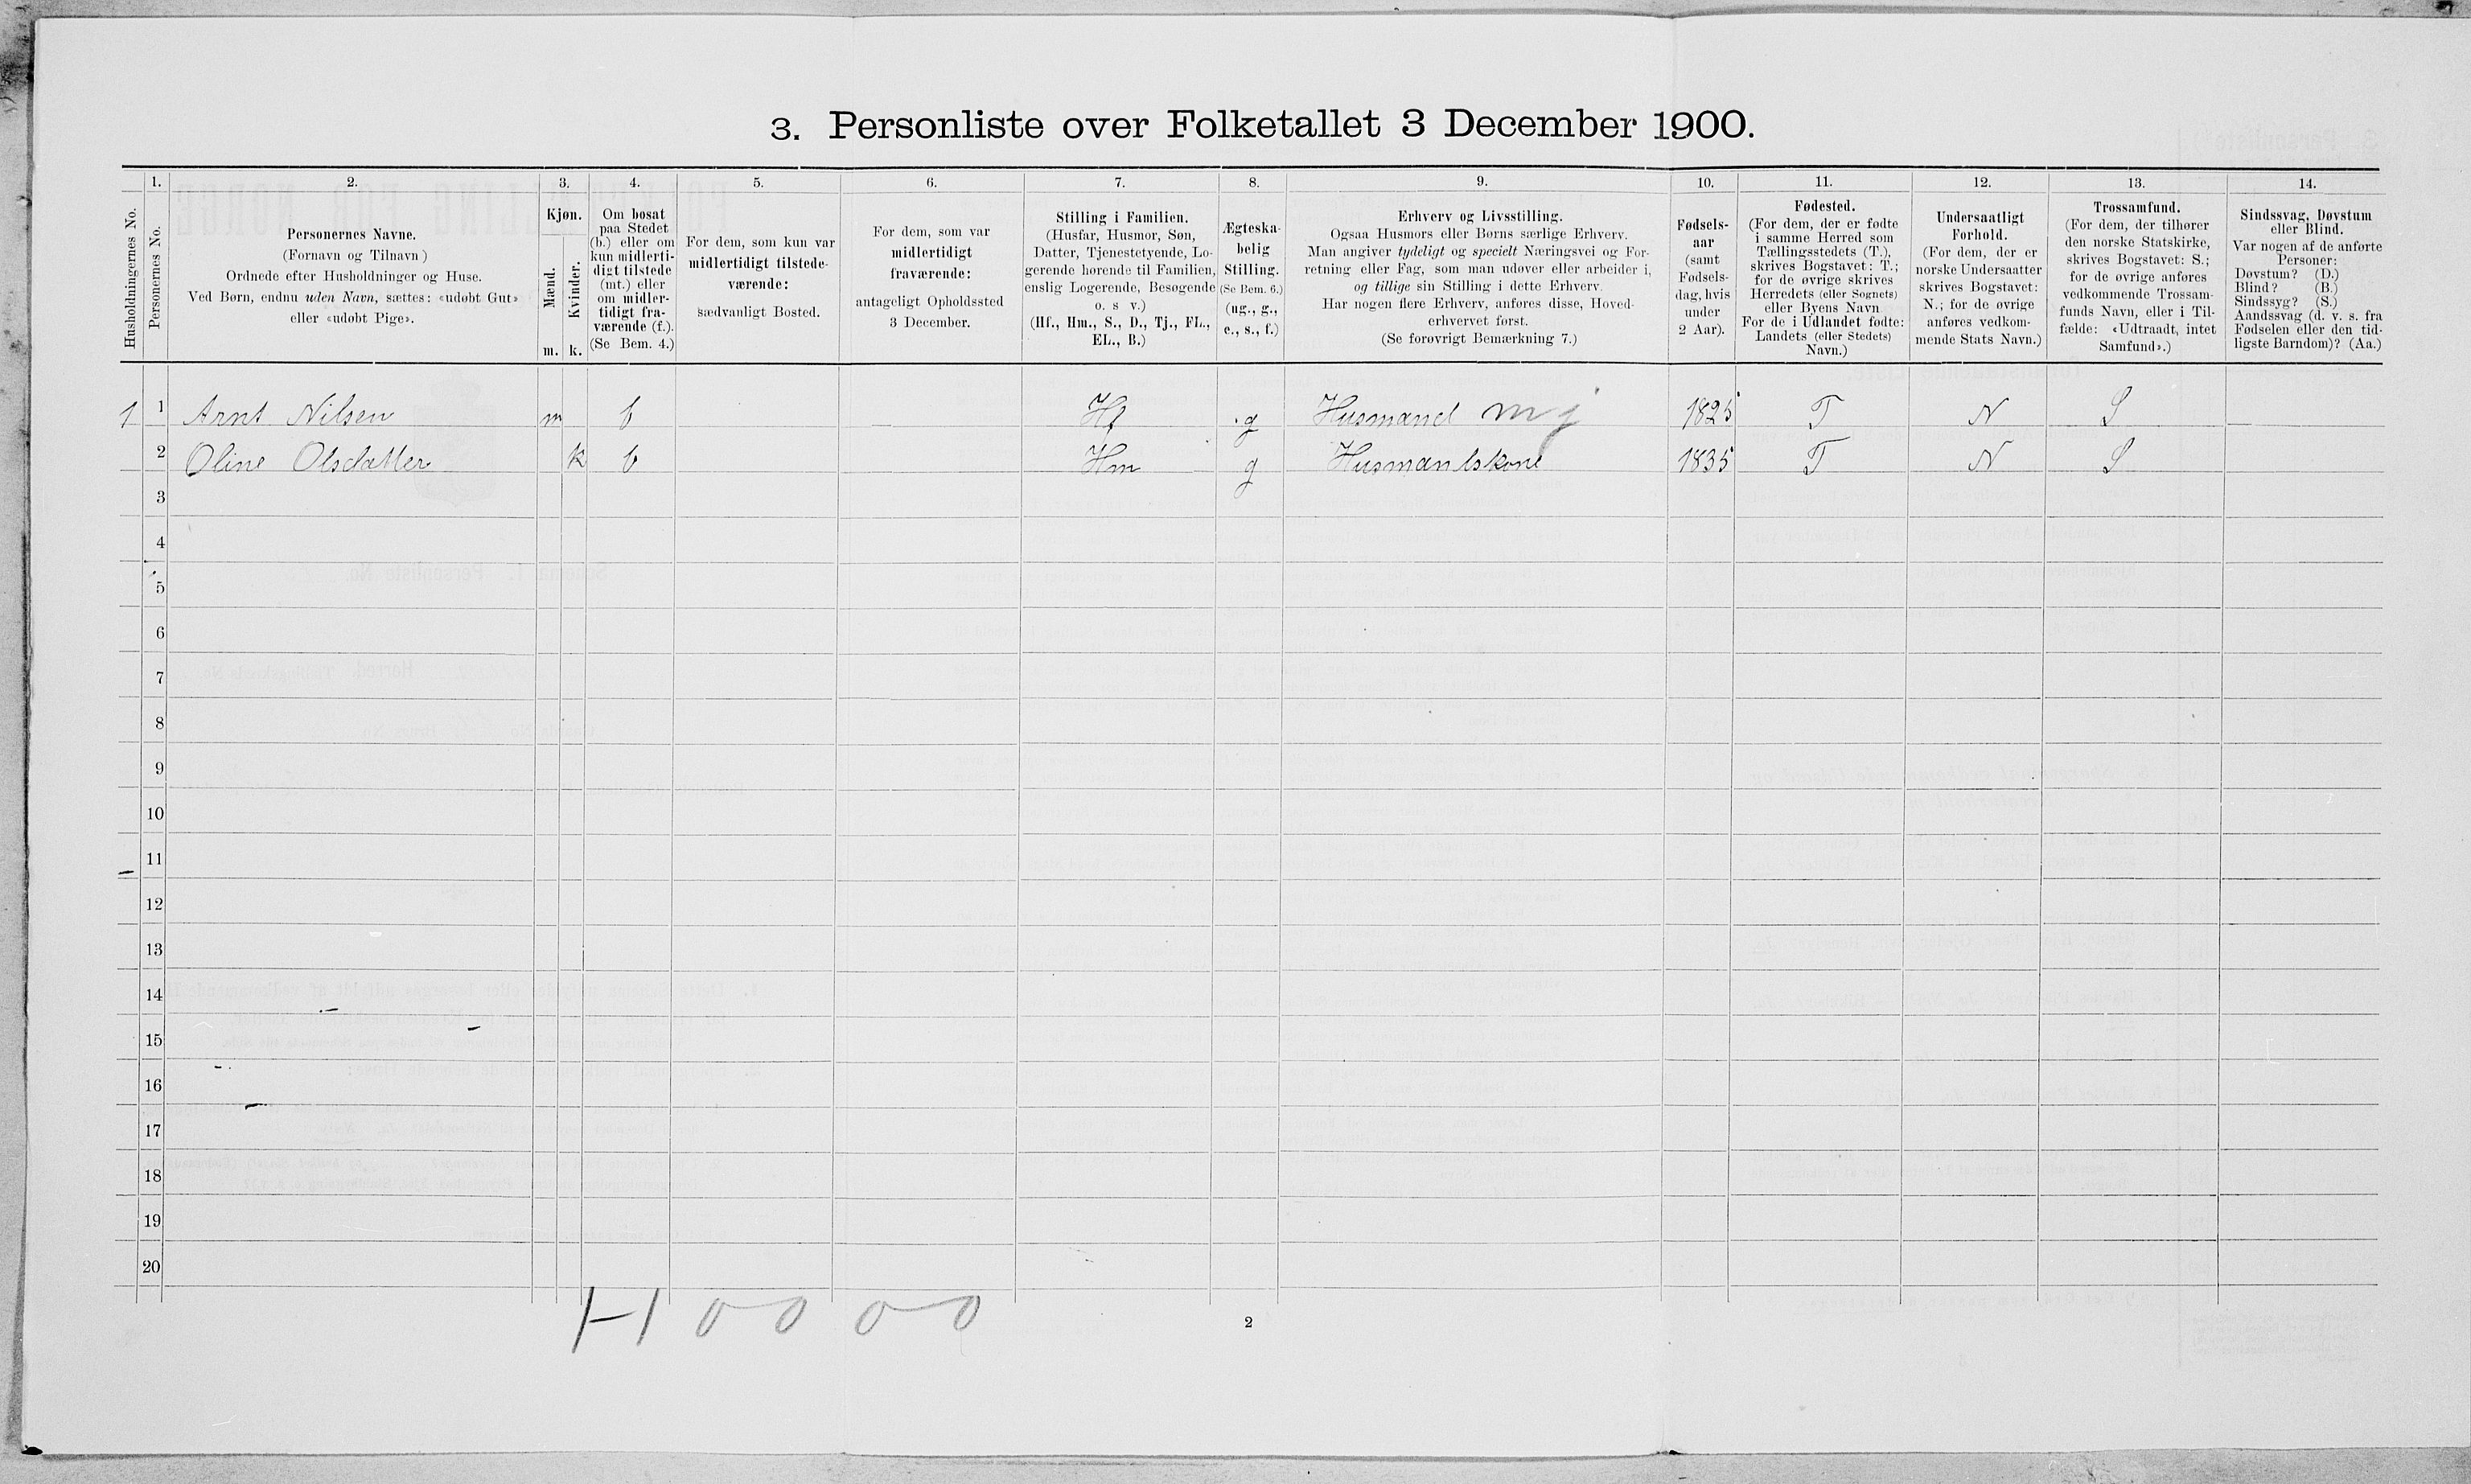 3. Personliste over Folketallet 3 December 1900.
Husholdningernes No.
1.
Personernes No.
2.
Personernes Navne.
(Fornavn og Tilnavn)
Ordnede efter Husholdninger og Huse.
Ved Børn, endnu uden Navn, sættes: «udøbt Gut»
eller «udøbt Pige».
3.
Kjøn.
Mænd.
m.
Kvinder.
k.
4.
Om bosat
paa Stedet
(b.) eller om
kun midlerti-
digt tilstede
(mt.) eller
om midler-
tidigt fra-
værende (f.).
(Se Bem. 4.)
5.
For dem, som kun var
midlertidigt tilstede-
værende:
sædvanligt Bosted.
6.
For dem, som var
midlertidigt
fraværende:
antageligt Opholdssted
3 December.
7.
Stilling i Familien.
(Husfar, Husmor, Søn,
Datter, Tjenestetyende, Lo-
gerende hørende til Familien,
enslig Logerende, Besøgende
o. s v.)
(Hf., Hm., S., D., Tj., FL.,
EL., B.)
8.
Ægteska-
belig
Stilling.
(Se Bem. 6.)
(ug., g.,
e., s., f.)
9.
Erhverv og Livsstilling.
Ogsaa Husmors eller Børns særlige Erhverv.
Man angiver tydeligt og specielt Næringsvei og For-
retning eller Fag, som man udøver eller arbeider i,
og tillige sin Stilling i dette Erhverv.
Har nogen flere Erhverv, anføres disse, Hoved-
erhvervet først.
(Se forøvrigt Bemærkning 7.)
10.
Fødsels-
aar
(samt
Fødsels-
dag, hvis
under
2 Aar).
11.
Fødested.
(For dem, der er fødte
i samme Herred som
Tællingsstedets (T.),
skrives Bogstavet: T.;
for de øvrige skrives
Herredets (eller Sognets)
eller Byens Navn
For de i Udlandet fødte:
Landets (eller Stedets)
Navn.)
12.
Undersaatligt
Forhold.
(For dem, der er
norske Undersaatter
skrives Bogstavet:
N.; for de øvrige
anføres vedkom-
mende Stats Navn.)
13.
Trossamfund.
(For dem, der tilhører
den norske Statskirke,
skrives Bogstavet: S.;
for de øvrige anføres
vedkommende Trossam-
funds Navn, eller i Til-
fælde: «Udtraadt, intet
Samfund».)
14.
Sindssvag, Døvstum
eller Blind.
Var nogen af de anførte
Personer:
Døvstum? (D.)
Blind? (B.)
Sindssyg? (S.)
Aandssvag (d. v. s. fra
Fødselen eller den tid-
ligste Barndom)? (Aa.)
1 1 Arnt Nilsen m b Hf g Husmand m j 1825 T N S
2 Oline Olsdatter k b Hm g Husmandskone 1835 T N S
3
4
5
6
7
8
9
10
11
12
13
14
15
16
17
18
19
20
1-1 0 0 0 0
2